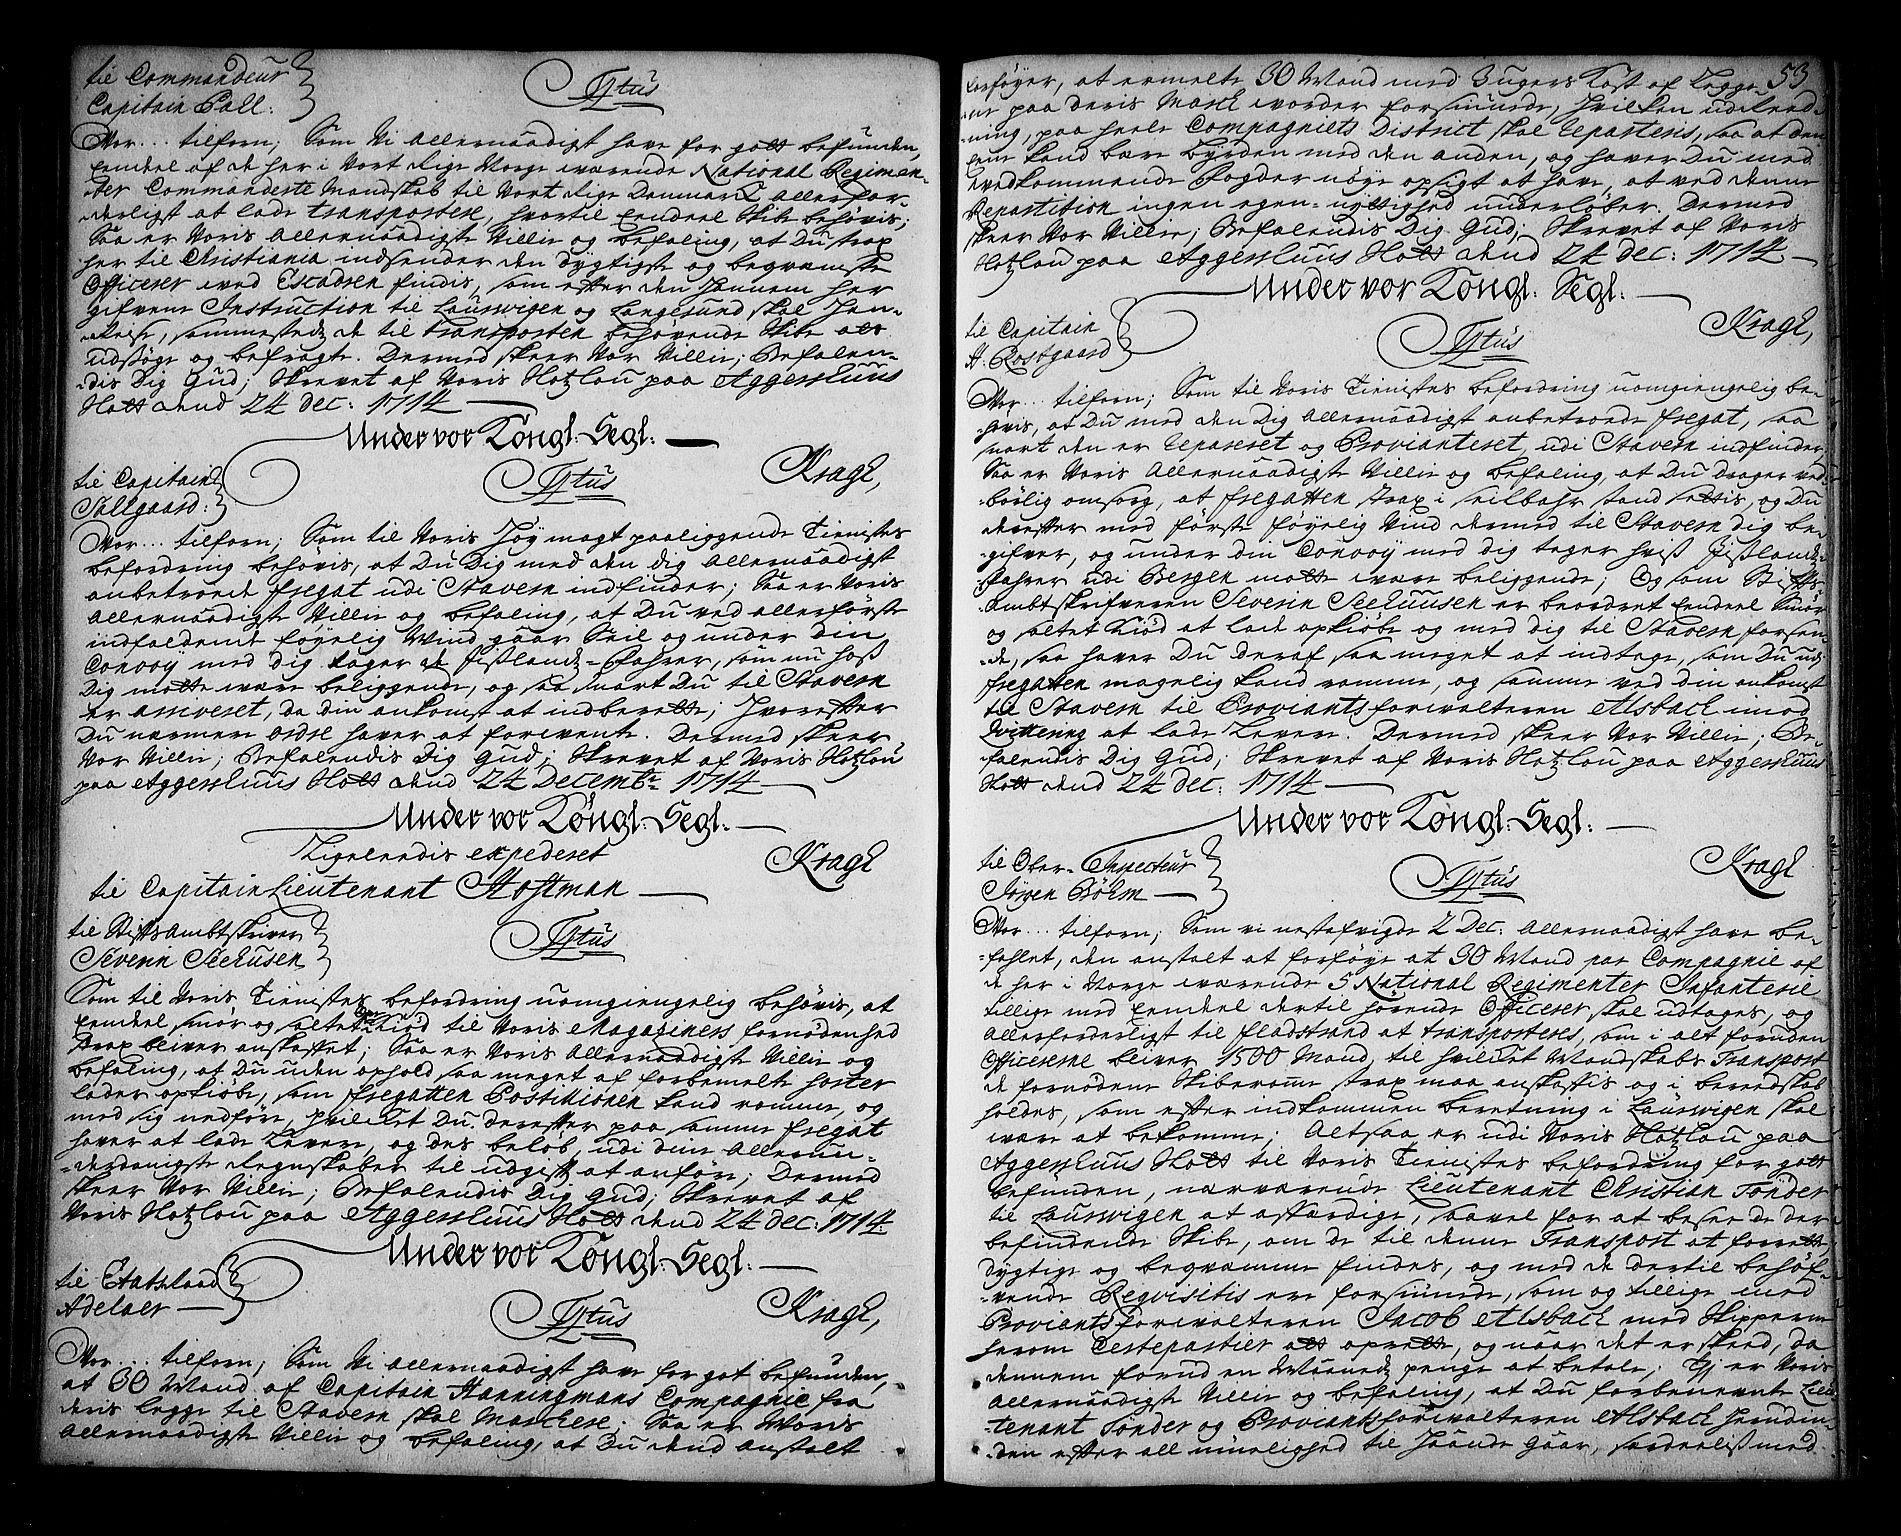 til Commandeur
Capitain Pall:
Tjtus
Vor... tilforn; Som Vi Allernaadigst have for gott befunden,
Eendeel af de her i Vort Rige Norge værende National Regimen-
ter Commanderte Mandskab til Vort Rige Danmark allerfor-
derligst at lade transportere, hvortil Eendeel Skibe behøvis;
Saa er Voris Allernaadigste Villie og befaling, at Du strax
her til Christiania indsender den dygtigste og beqvemste
Officerer wed Escadren findis, som efter den hannem her
gifvene Instruction til Laurwigen og Langesund skal hen-
Reise, sammesteds de til transporten behøvende Skibe at
udsøge og befragte. Dermed skeer Vor Villie; Befalen-
dis Dig Gud; Skrevet af Voris Hotzlou paa Aggershuus
Slott dend 24 Dec: 1714
Under vor Köngl: Segl:
Kragh,
til Capitain
Tallgaard:
Tjtus
Vor... tilforn; Som til Voris høy magt paaliggende Tienistes
befordring behøvis, at Du Dig med den dig Allernaadigst
anbetroede fregat udi Stavern indfinder; Saa er Voris
Allernaadigste Villie og befaling, at Du ved allerførste
indfaldende føyelig Wind gaar Seil og under din
Convoy med dig tager de Jißlandz-Fahrer, som nu hoß
Dig motte være beliggende, og saa snart Du til Stavern
er arriveret, da din ankomst at indberette; hvorefter
Du nærmere ordre haver at forvente. Dermed skeer
Vor Villie; Befalendis Dig Gud; Skrevet af Voris Hotzlou
paa Aggershuus Slott dend 24 Decembr: 1714
Under vor Köngl: Segl:
Ligeleedis expederet
Kragh
til Capitain Lieutenant Stoftman
til Stifts Ambtskriver
Severin Seehusen
Tjtus
Som til Voris Tienistes befordring uomgiengelig behøvis, at
Eendeel smør og saltet Kiød til Voris Magaziners fornødenhed
strax bliver anskaffet; Saa er Voris Allernaadigste Villie og
befaling, at Du uden ophold saa meget af forbemelte sorter
lader opkiøbe, som fregatten Postilionen kand romme, og
med sig nedføre, hvilcket Du derefter paa samme fregat
haver at lade levere, og des beløb udi dine Allerun-
derdanigste Regnskaber til udgift at anføre; Dermed
skeer Vor Villie; Befalendis Dig Gud; Skrevet af
Voris Hotzlou paa Aggershuus Slott dend 24 Dec: 1714
Under vor Köngl: Segl:
til Etatsraad
Adelaer
Tjtus
Kragh,
Vor... tilforn; Som Vi Allernaadigst have for got befunden,
at 30 Mand af Capitain Hanningmans Compagnie fra
deris legge til Stavern skal Marchere; Saa er Woris
Allernaadigste Villie og befaling, at Du dend anstalt
53
forføyer, at ermelte 30 Mand med 3 ugers Kost af Legge-
ne paa deris March worder forsiunede, hvilken udreed-
ning, paa heele Compagniets District skal reparteris, saa at den
eene kand bære byrden med den anden, og haver Du med
wedkommende fogder nøye opsigt at have, at ved denne
Repartition ingen egen-nyttighed underløber. Dermed
skeer Vor Villie; Befalendis Dig Gud; Skrevet af Voris
Hotzlou paa Aggershuus Slott dend 24 Dec: 1714
Under vor Köngl: Segl:
Kragh,
til Capitain
H. Rostgaard
Tjtus
Vor... tilforn; Som til Voris Tienistes befordring uomgiengelig be-
høvis, at Du med den Dig Allernaadigst anbetroede fregat, saa
snart den er repareret og Provianteret, udi Stavern indfinder,
Saa er Voris Allernaadigste Villie og befaling, at Du Drager ved-
børlig omsorg, at fregatten strax i seilbahr stand settis, og Du
derefter med første føyelig Vind dermed til Stavern Dig be-
gifver, og under din Convoy med dig tager hviß Jißlands-
Fahrer udi Bergen motte være beliggende; Og som Stifts
Ambtskrifveren Severin Seehuusen er beordret Eendeel Smør
og saltet Kiød at lade opkiøbe og med dig til Stavern forsen-
de, saa haver Du deraf saa meget at indtage, som Du udi
fregatten magelig kand romme, og samme ved din ankomst
til Stavern til Proviantsforwalteren Alsback imod
Qvittering at lade levere. Dermed skeer Vor Villie; Be-
falendis Dig Gud; Skrevet af Voris Hotzlou paa Aggershuus
Slott dend 24 Dec: 1714
Under vor Köngl: Segl:
Kragh
til Ober-Inspecteur
Jørgen Bøhm
Tjtus
Vor... tilforn; Som vi nestafvigde 2 Dec: Allernaadigst have be-
fahlet, den anstalt at forføye at 30 Mand par Compagnie af
de her i Norge wærende 5 National Regimenter Infanterie
tillige med Eendeel dertil hørende Officerer skal udtages, og
Allerforderligst til fladstrand at transporteres, som i alt foruden
Officererne bliver 1500 Mand, til hvilcket Mandskabs Transport
de fornødene Skibsrome strax maa anskaffis og i beredskab
holdes, som efter indkommen beretning i Laurwigen skal
være at bekomme; Altsaa er udi Voris Hotzlou paa
Aggershuus Slott til Voris Tienistes befordring for gott
befunden, nærværende Lieutenant Christian Tønder
til Laurwigen at afferdige, saavel for at besee de der
befindende Skibe, om de til denne Transport at forrette,
dygtige og beqvemme findes, og med de dertil behøf-
vende Reqvisitis ere forsiunede, som og tillige med
Proviantsforwalteren Jacob Alsback med Skipperne
herom Certepartier at oprette, og naar det er skeed, da
dennem forud en Maaneds penge at betale; Thj er Voris
Allernaadigste Villie og befaling, at Du forbenevnte Lieu-
tenant Tønder og Proviantsforwalteren Alsback herudin-
den efter all muelighed til Haande gaar, særdeeliß med